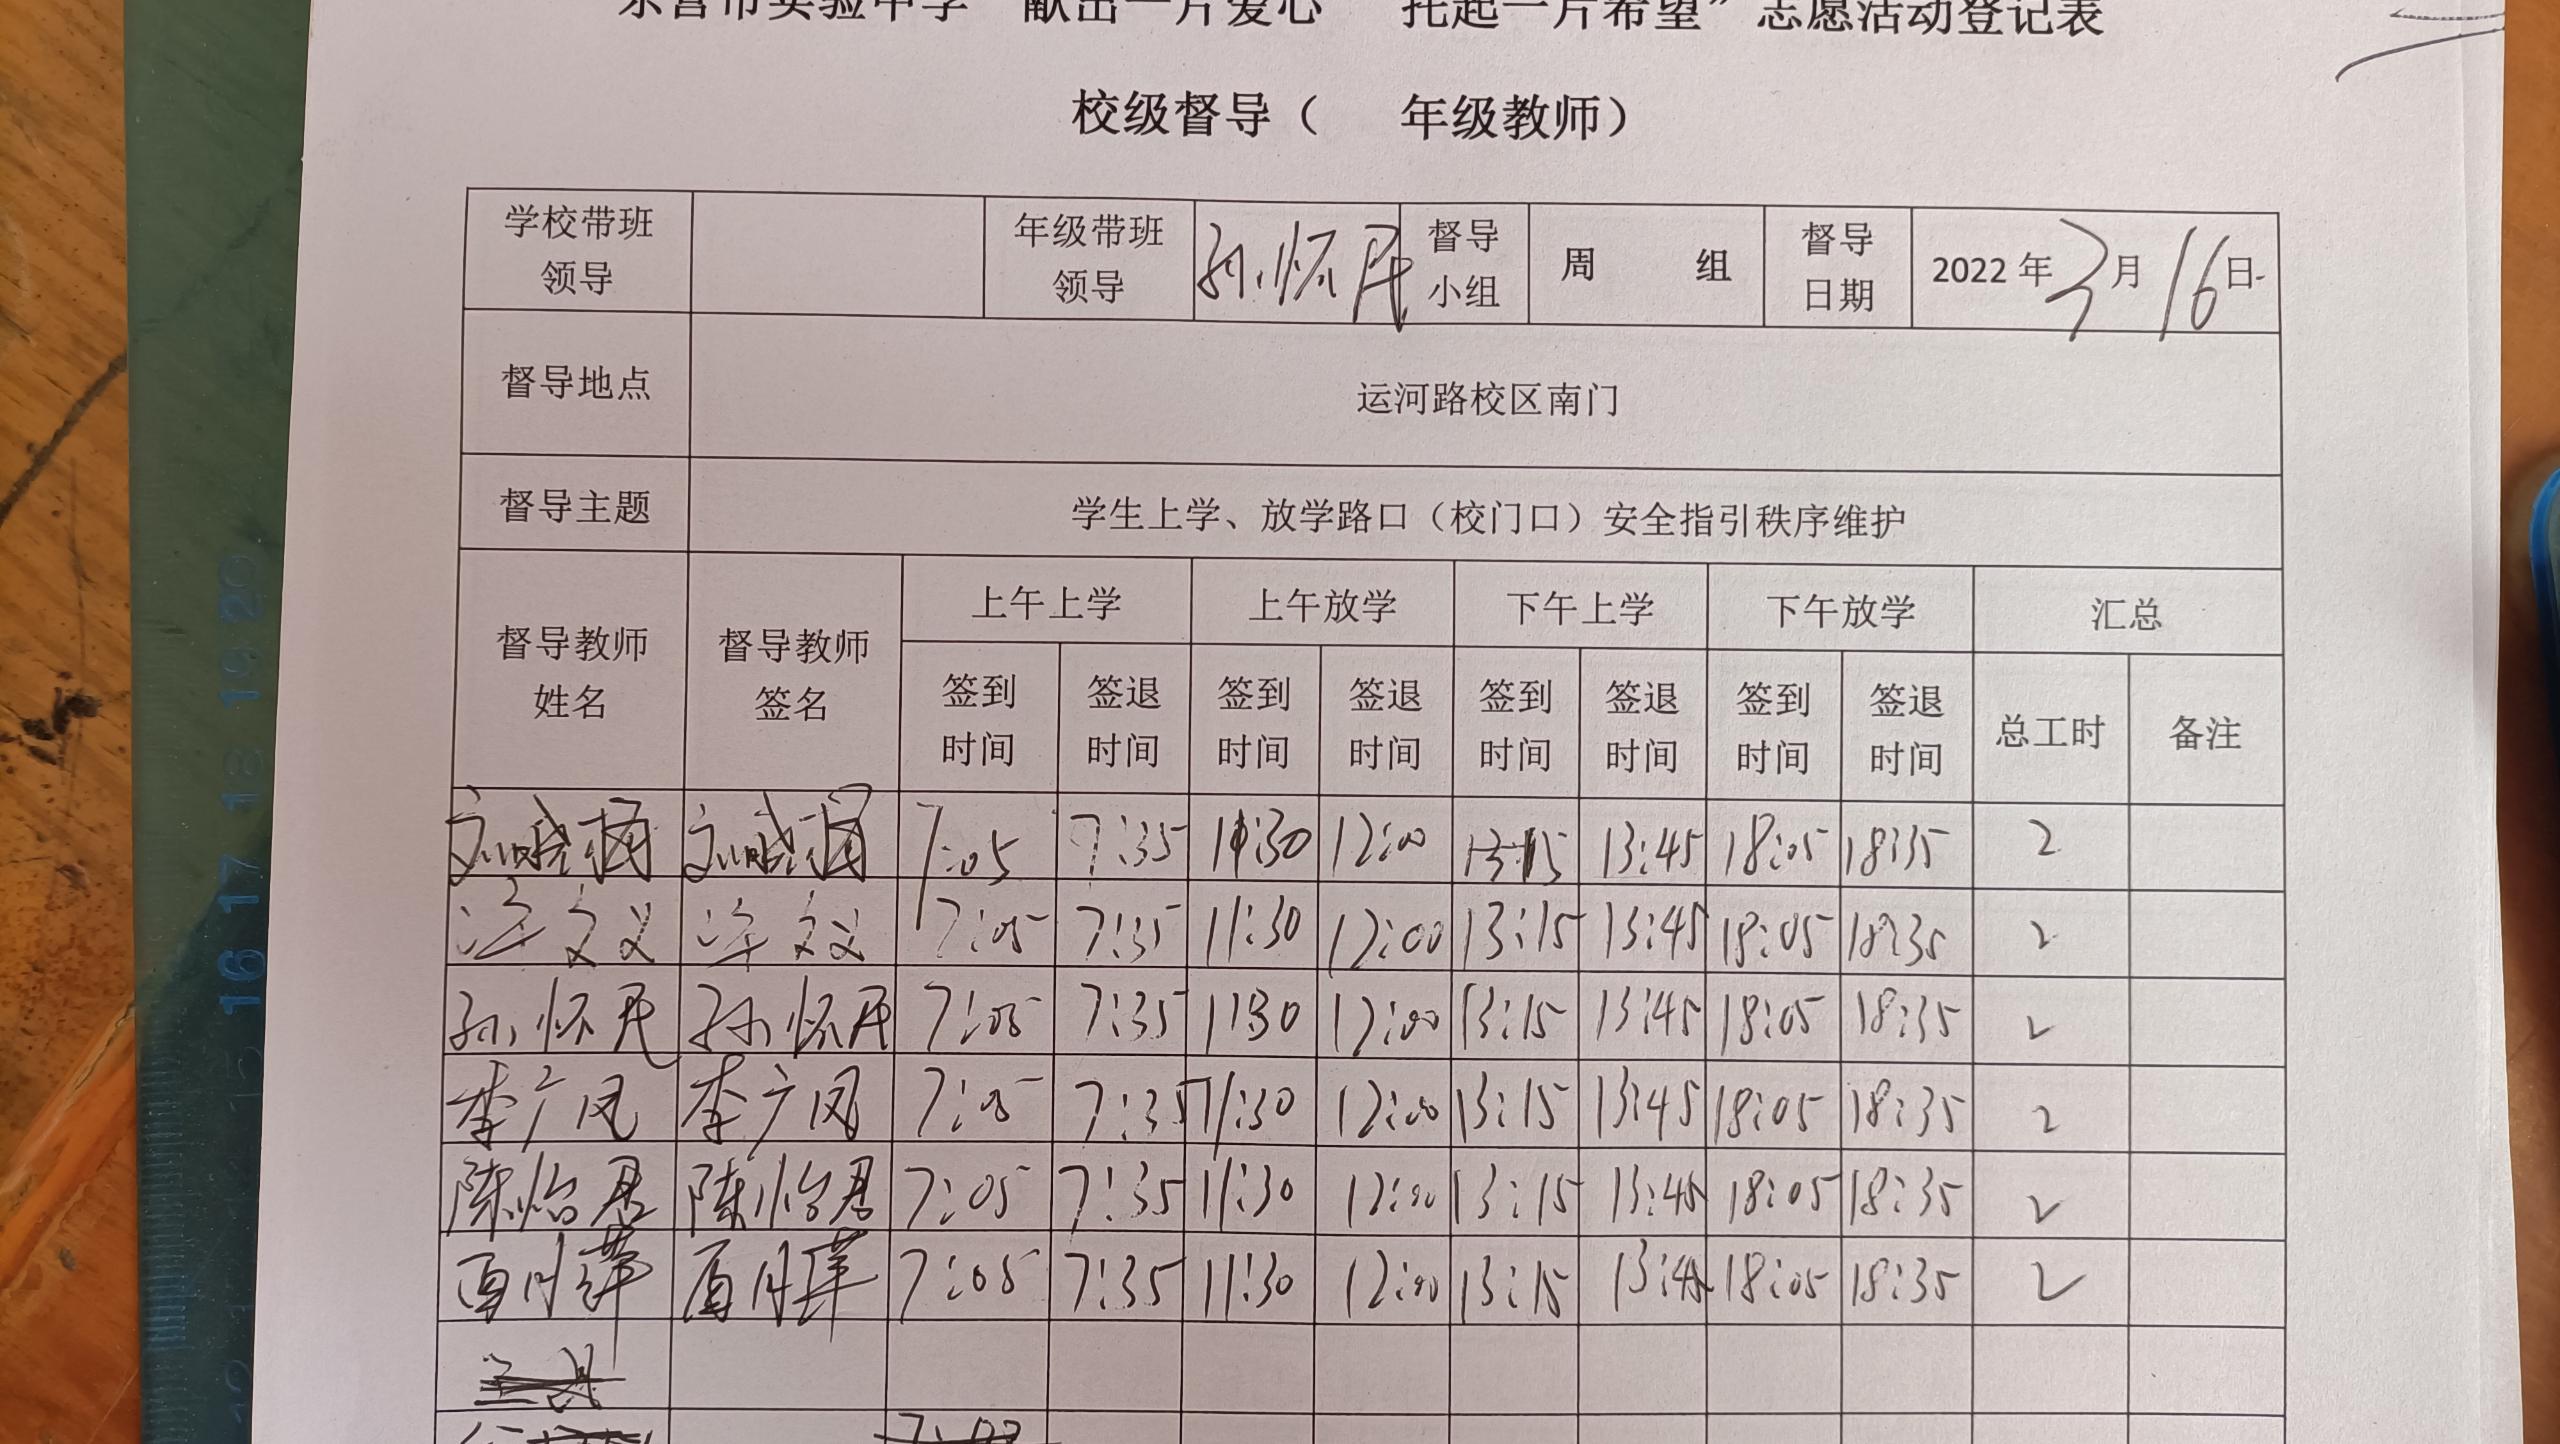 东营市实验中学“献出一片爱心 托起一片希望”志愿活动登记表
校级督导（ 年级教师）
学校带班领导 年级带班领导 孙怀民 督导小组 周 组 督导日期 2022年3月16日
督导地点 运河路校区南门
督导主题 学生上学、放学路口（校门口）安全指引秩序维护
督导教师姓名 督导教师签名 上午上学 上午放学 下午上学 下午放学 汇总
签到时间 签退时间 签到时间 签退时间 签到时间 签退时间 签到时间 签退时间 总工时 备注
7:05 7:35 11:30 12:00 13:15 13:45 18:05 18:35 2
7:05 7:35 11:30 12:00 13:15 13:45 18:05 18:35 2
孙怀民 孙怀民 7:05 7:35 11:30 12:00 13:15 13:45 18:05 18:35 2
李广凤 李广凤 7:05 7:35 11:30 12:00 13:15 13:45 18:05 18:35 2
陈怡君 陈怡君 7:05 7:35 11:30 12:00 13:15 13:45 18:05 18:35 2
7:05 7:35 11:30 12:00 13:15 13:45 18:05 18:35 2
16 17 18 19 20